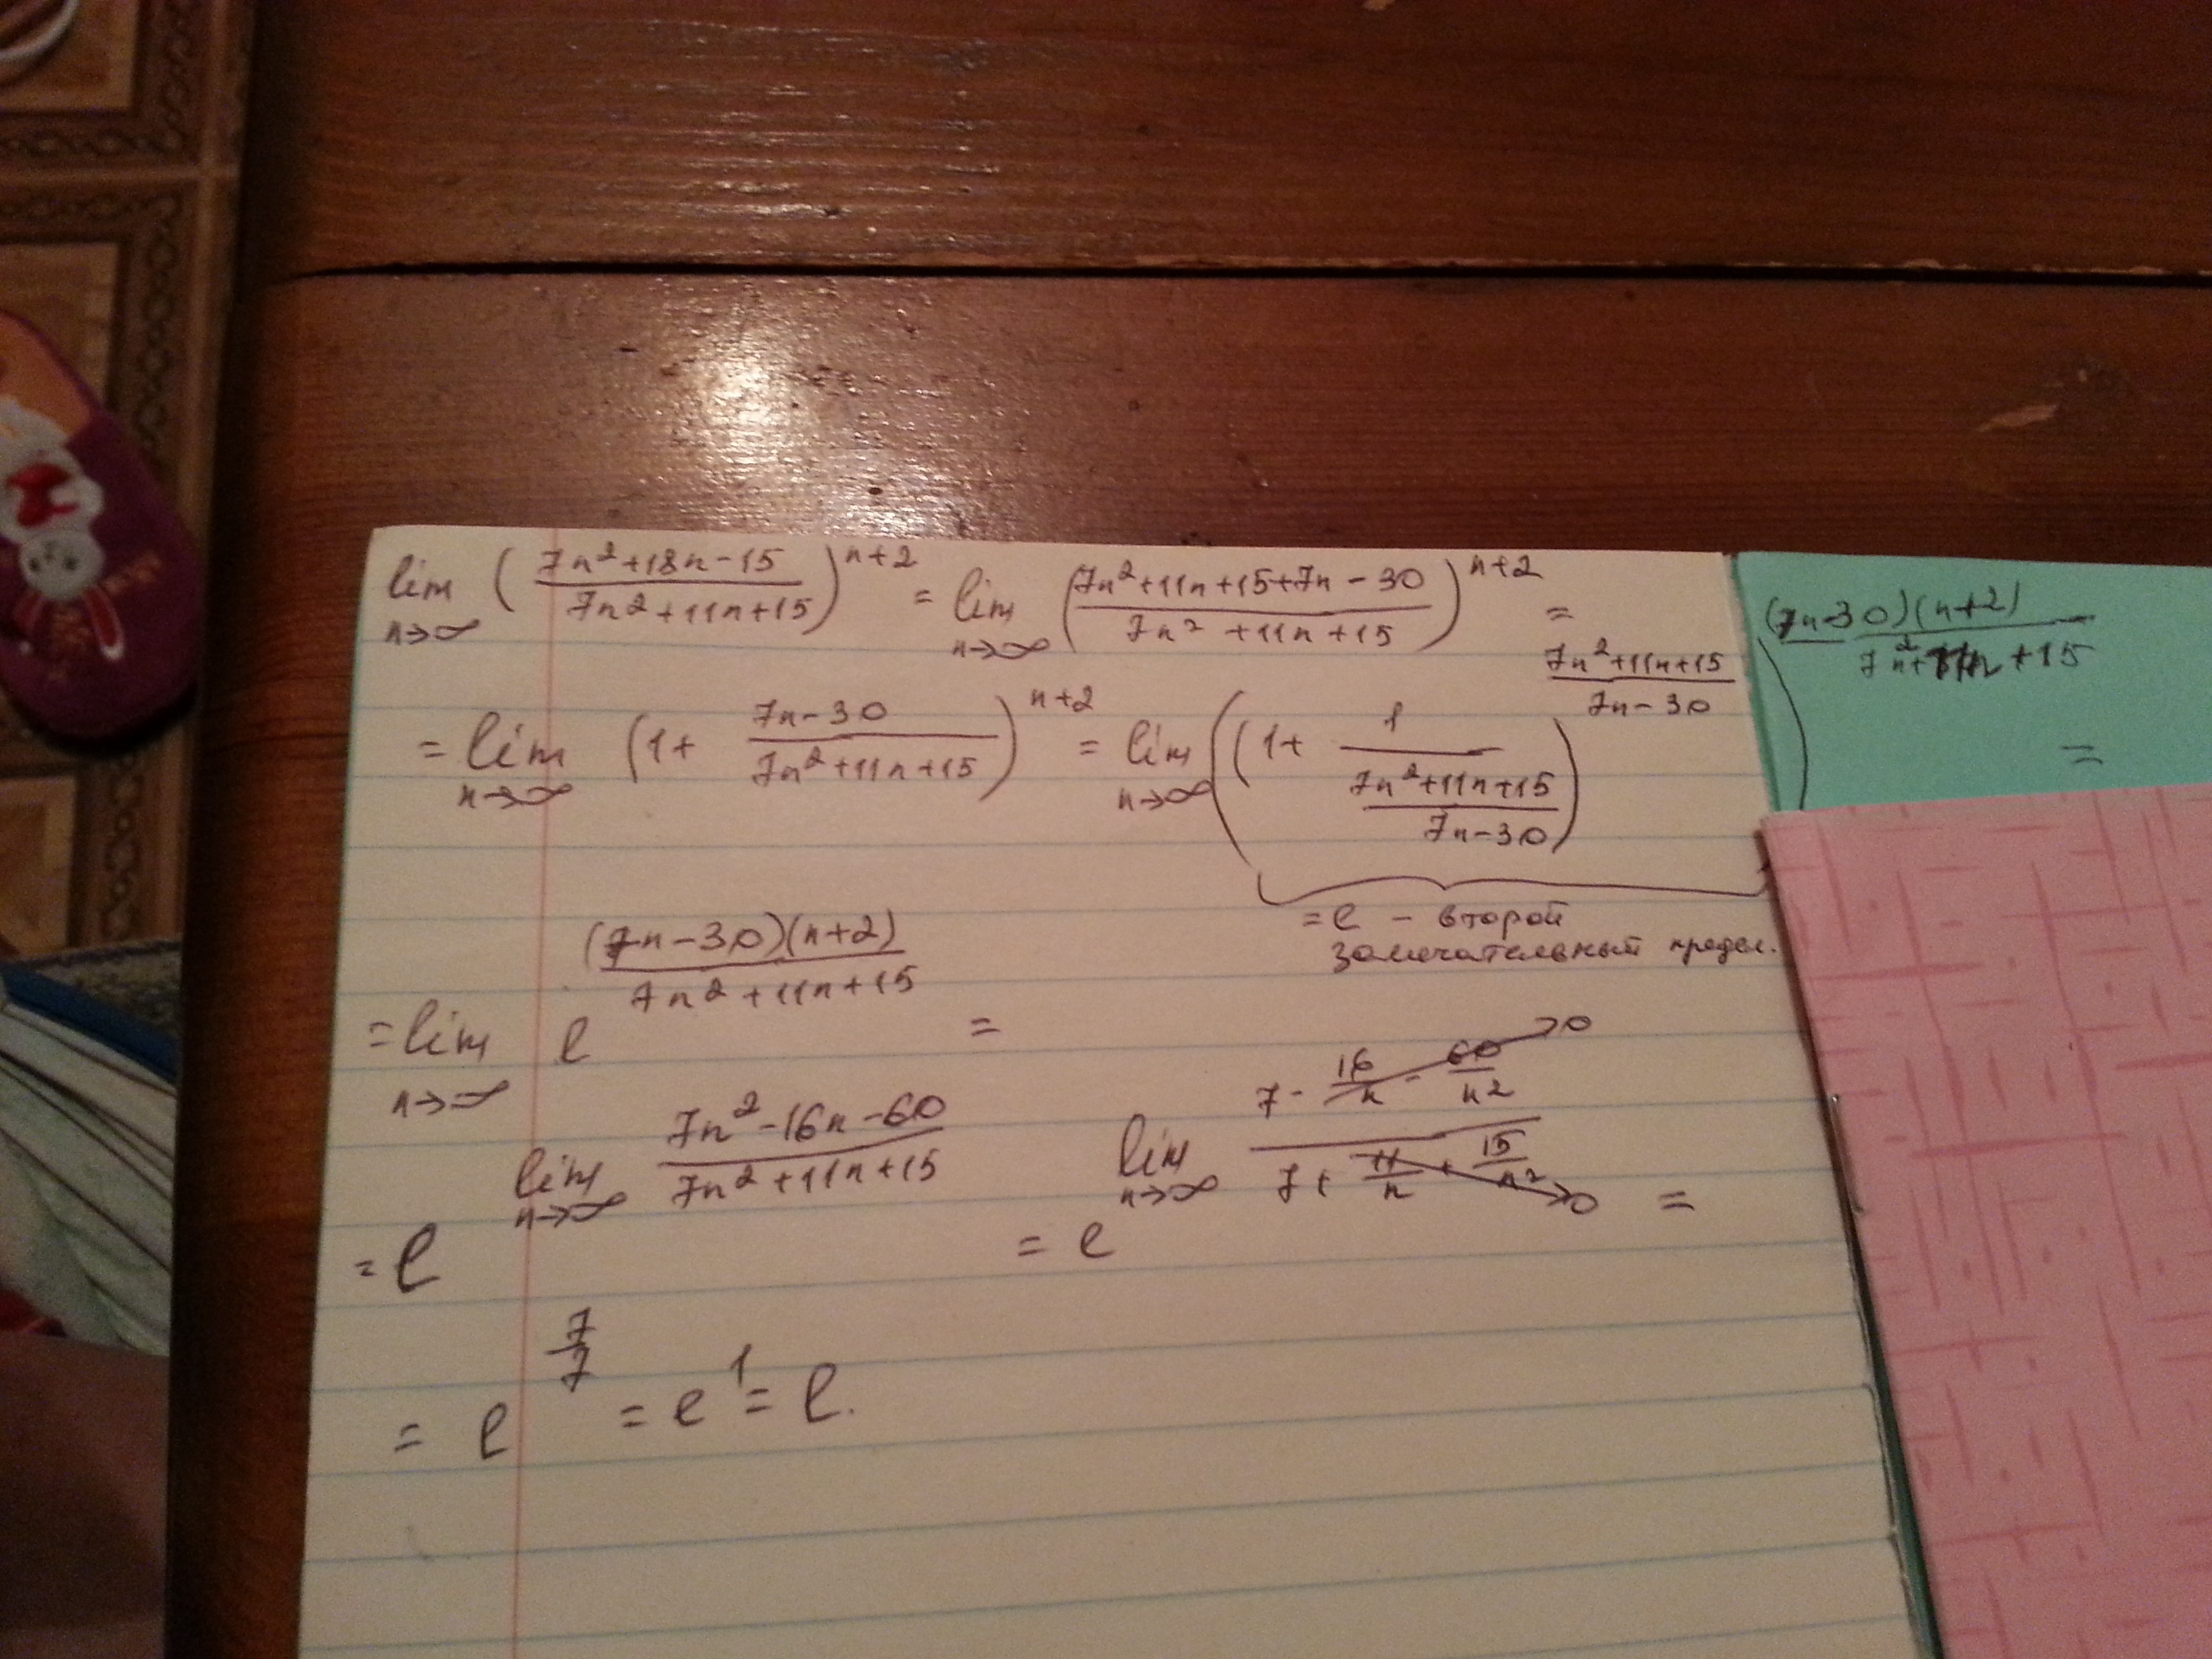 lim n→∞ ( (7n²+18n-15)/(7n²+11n+15) )^(n+2) = lim n→∞ ( (7n²+11n+15+7n-30)/(7n²+11n+15) )^(n+2) =
= lim n→∞ (1+ (7n-30)/(7n²+11n+15) )^(n+2) = lim n→∞ ( (1+ 1/((7n²+11n+15)/(7n-30)) )^((7n²+11n+15)/(7n-30)) )^((7n-30)(n+2)/(7n²+11n+15)) =
= e - второй
замечательный предел.
= lim n→∞ e^((7n-30)(n+2)/(7n²+11n+15)) =
= e^(lim n→∞ (7n²-16n-60)/(7n²+11n+15)) = e^(lim n→∞ (7 - 16/n - 60/n² →0)/(7 + 11/n + 15/n² →0)) =
= e^(7/7) = e^1 = e.